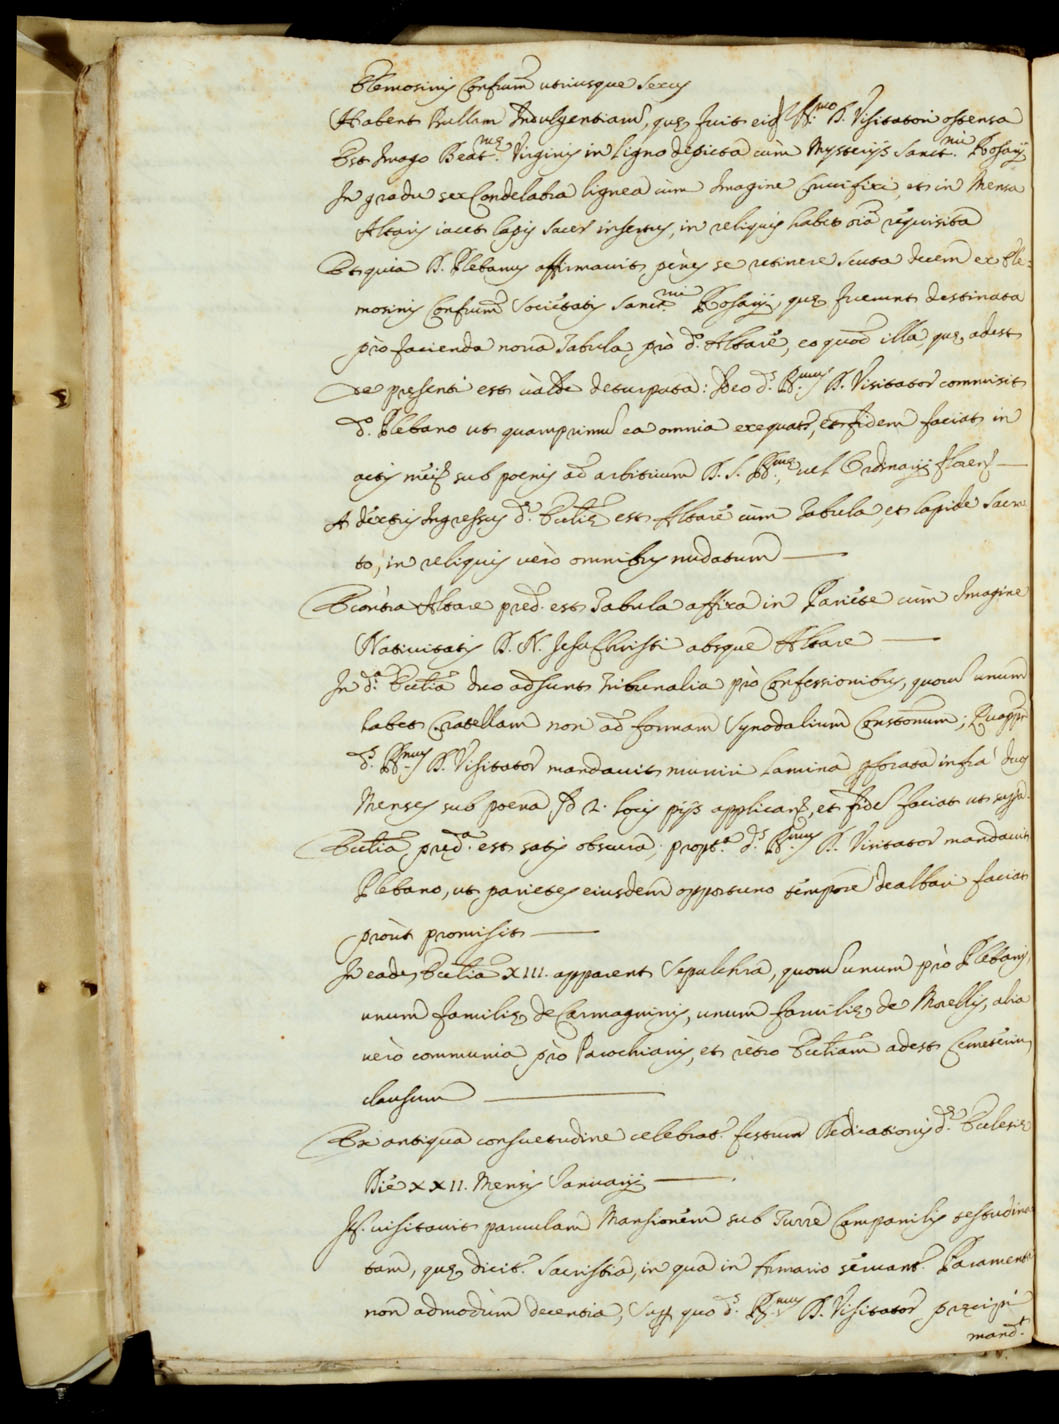 Elemosinis Confrum utriusque Sexus
Habent Bullam Indulgentiarum, quę fuit eid. Ill.mo D. Visitatori ostensa
Est Imago Beat.mę Virginis in ligno depicta cùm Mysterijs Sanct.mi Rosarij
In gradu sex Candelabra lignea cùm Imagine Crucifixi, et in Mensa
Altaris iacet lapis sacer insertus, in reliquis habet oĩa requisita
Et quia D. Plebanus affirmavit, penès se retinere scuta decem ex Ele-
mosinis Confrum Societatis Sanct.mi Rosarij, quę fuerunt destinata
prò facienda nova Tabula prò d.o Altare, eo quod illa, quę adest
de presenti est valde deturpata: Ideo d.s R.mus D. Visitator commisit
d.o Plebano ut quamprimũ ea omnia exequatr, et fidem faciat in
actis meis sub poenis ad arbitrium D. S. R.mę, vel Ordinarij Floren.
A dextris Ingressus d.ę Ecclię est Altare cùm Tabula, et lapide Sacra
to, in reliquis verò omnibus nudatum
Econtra Altare pred. est Tabula affixa in Pariete cùm Imagine
Nativitatis D. N. Jesu Christi absque Altare
In d.a Ecclia duo adsunt Tribunalia prò Confessionibus, quorũ unum
habet Cratellam non ad formam Synodalium Constonum; Quapp.
d.s R.mus D. Visitator mandavit muniri Lamina pforata infrà duos
Menses sub poena 2. locis pijs applican., et fidẽ faciat ut supra.
Ecclia pred.a est satis obscura; propt.a d.s R.mus D. Visitator mandavit
Plebano, ut parietes eiusdem opportuno tempore dealbari faciat
prout promisit
In eadẽ Ecclia XIII. apparent Sepulchra, quorũ unum prò Plebanis,
unum familię de Carmagninis, unum familię de Morellis, alia
verò communia prò Parochianis, et retro Eccliam adest Cemeteriũ
clausum
Ex antiqua consuetudine celebrat.r festum Dedicationis d.ę Ecclesię
Die XXII. Mensis Januarij
It. visitavit parvulam Mansionem sub Turre Campanilis testudina
tam, quę dicit.r Sacristia, in qua in Armario servant.r Paramenta
non admodum decentia, Sup. quo d.s R.mus D. Visitator precipi
mand.t